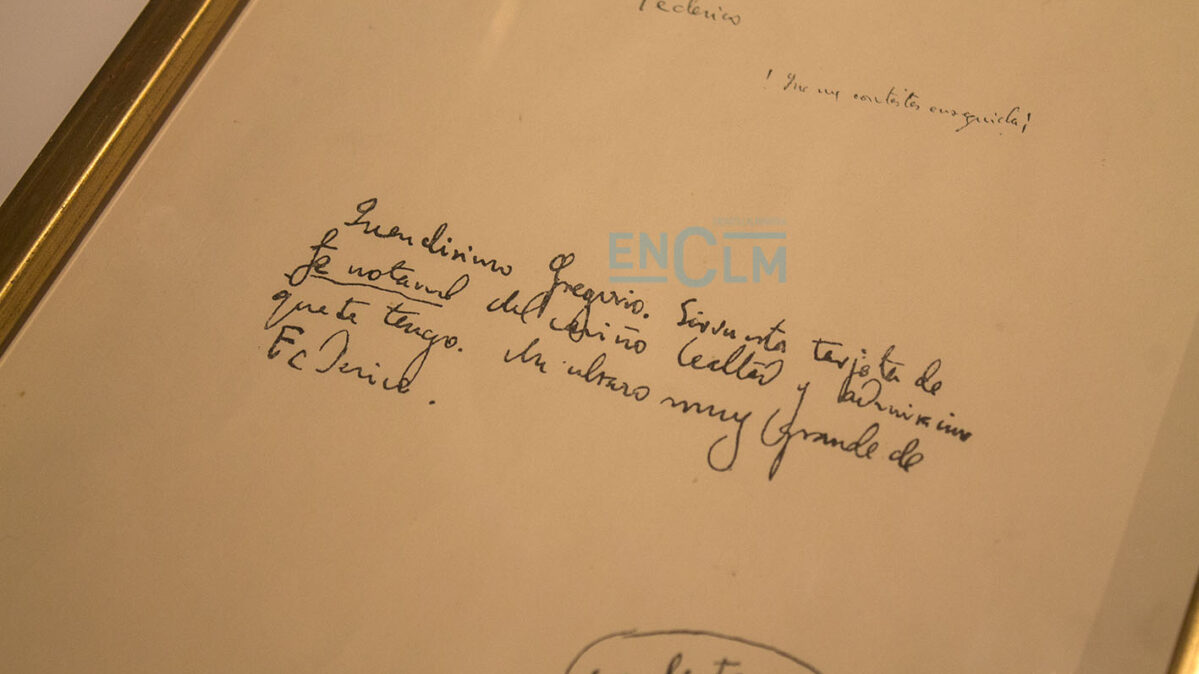 Federico
! Que me contestes enseguida!
ENCLM
Queridisimo Gregorio. Sirva esta tarjeta de
fe notarial del cariño lealtad y admiracion
que te tengo. Un abrazo muy grande de
Federico.